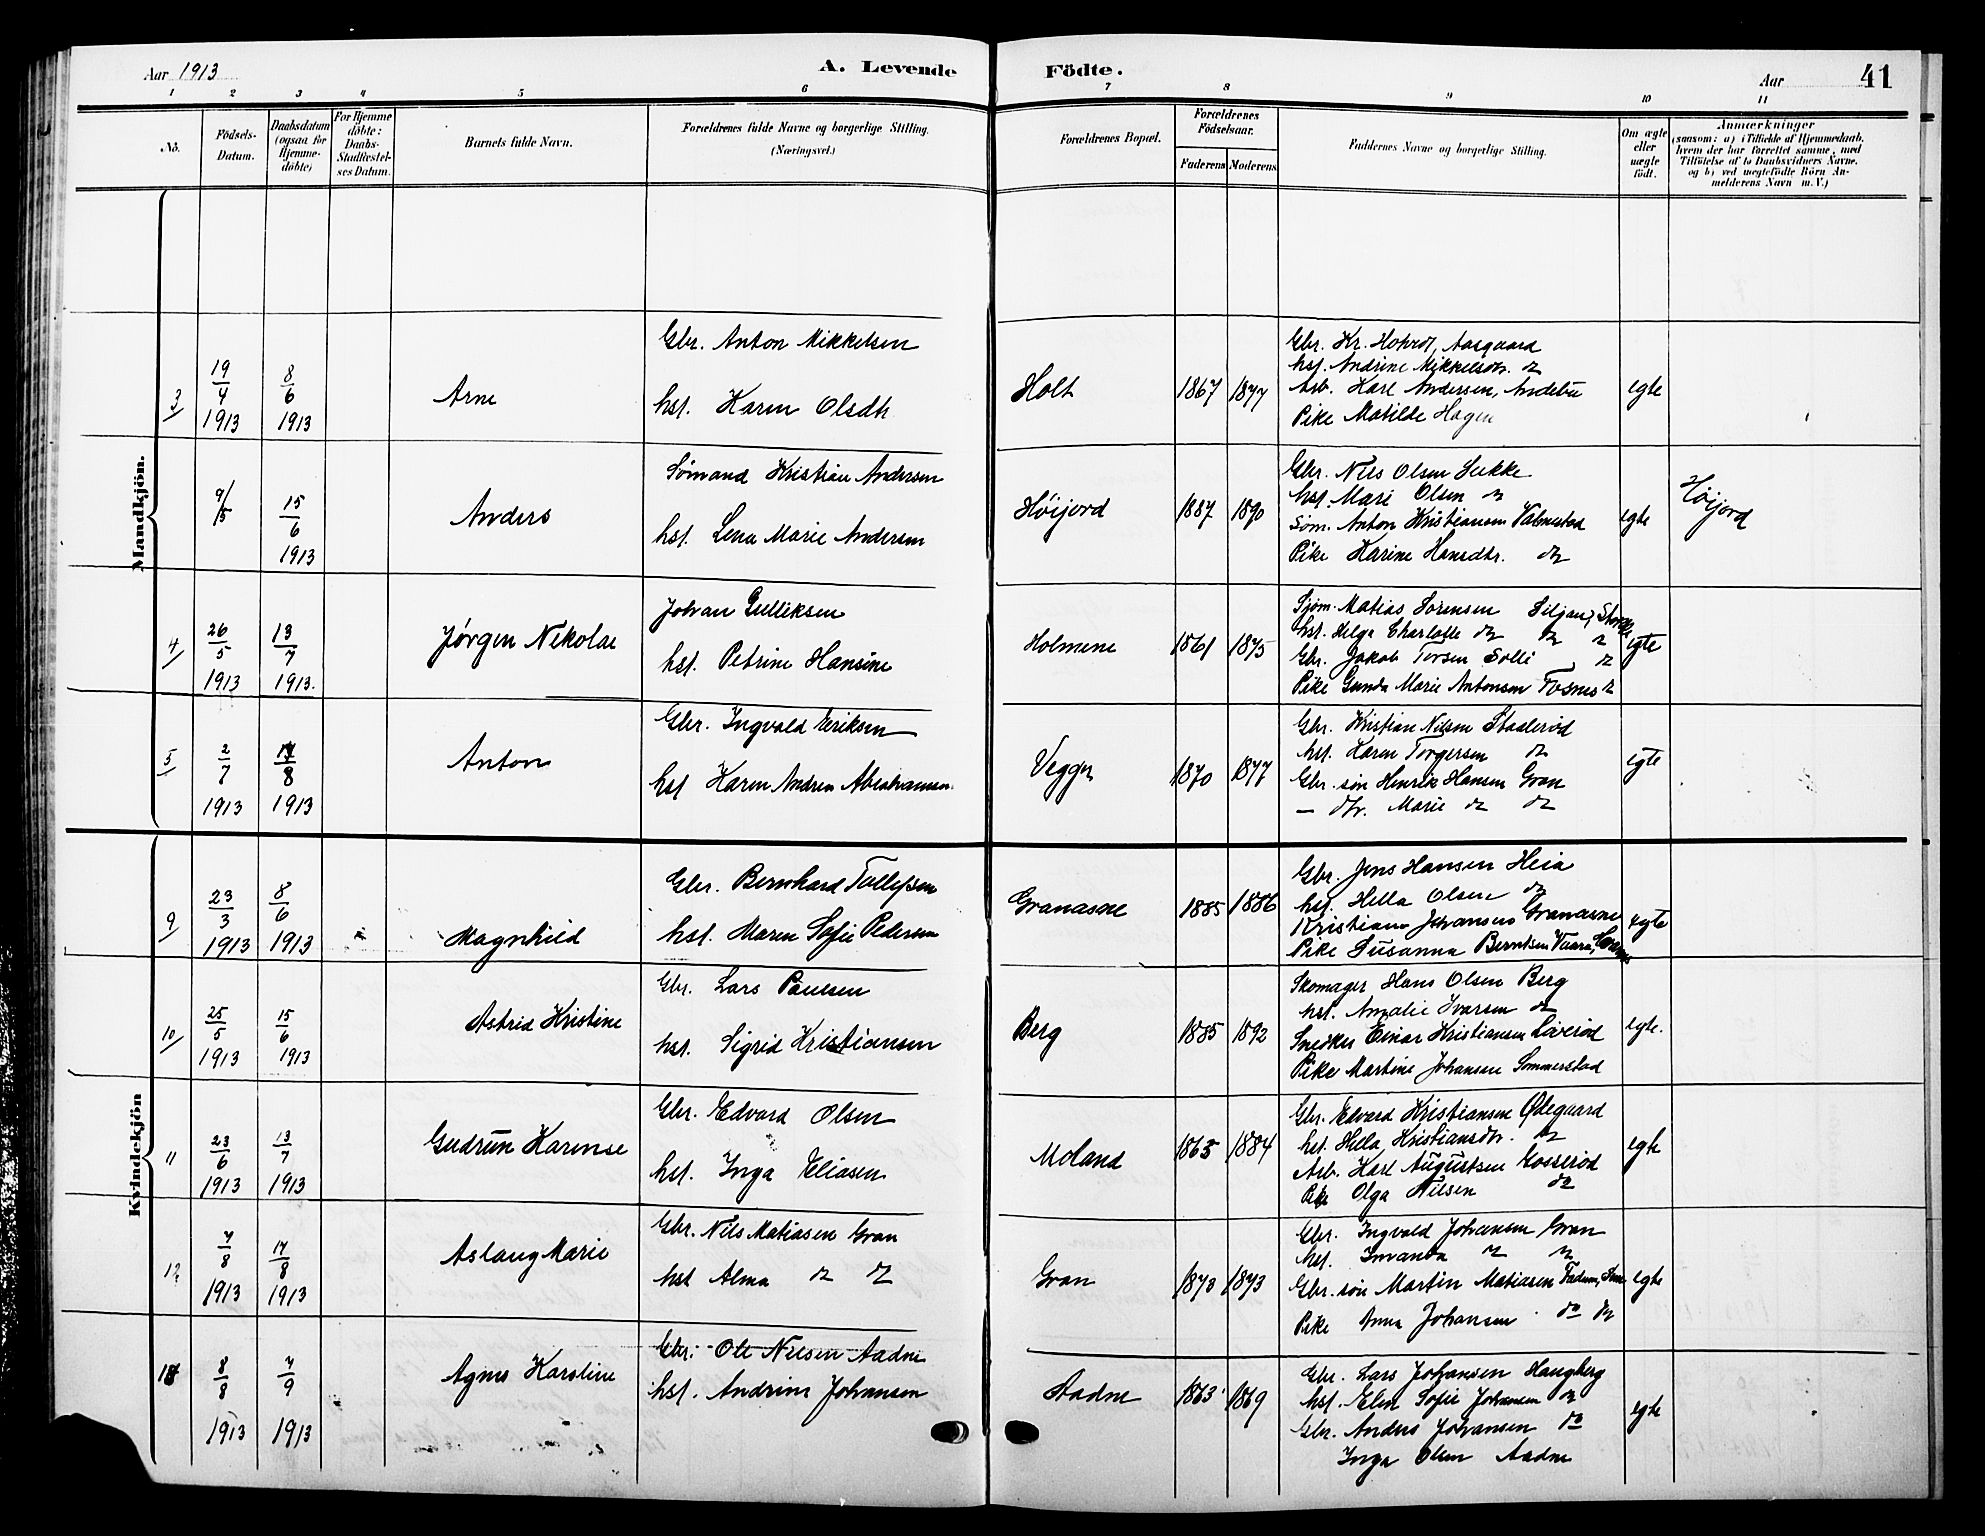 Aar 1913
A. Levende
Födte.
Aar
41
1 2 3 4 5 6 7 8 9 10 11
No.
Födsels-
Datum.
Daabsdatum
(ogsaa for
Hjemme-
døbte)
For Hjemme
døbte:
Daabs-
Stadfæstel-
ses Datum.
Barnets fulde Navn.
Forældrenes fulde Navne og borgerlige Stilling.
(Næringsvei.)
Forældrenes Bopæl.
Forældrenes
Födselsaar.
Faderens
Moderens
Faddernes Navne og borgerlige Stilling.
Om ægte
eller
uægte
födt.
Anmærkninger
(saasom: a) i Tilfælde af Hjemmedaab,
hvem der har forrettet samme, med
Tilföielse af to Daabsvidners Navne,
og b) ved uægtefödte Börn An-
melderens Navn m.V.)
Mandkjön.
3
19/4 1913
8/6 1913
Arne
Gbr. Anton Mikkelsen
hst. Karen Olsdtr
Holt
1867
1877
Gbr. Kr. Aasgaard
hst. Andrine Mikkelsdtr. do
Arb. Karl Andersen, Andebu
Pike Matilde Hagen
egte
9/5
15/6 1913
Anders
Sømand Kristian Andersen
hst. Lena Marie Andersen
Høijord
1887
1890
Gbr. Nils Olsen Sukke
hst. Mari Olsen do
Søm. Anton Kristiansen Valmestad
Pike Karine Hansdtr. do
egte
Høijord
4
26/5 1913
13/7 1913.
Jørgen Nikolai
Johan Gulliksen
hst. Petrine Hansine
Holmene
1861
1875
Sjøm. Matias Sørensen Siljan,
hst. Helga Charlotte do do do
Gbr. Jakob Torsen Solli do
Pike Gunda Marie Antonsen do
egte
5
2/7 1913
17/8 1913
Anton
Gbr. Ingvald Eriksen
hst Karen Andrea Abrahamsen
Vegger
1870
1877
Gbr. Kristian Nilsen Staalerød
hst. Karen Torgersen do
Gbr. søn Henrik Hansen Gran
— dtr. Marie do do
egte
Kvindekjön
9
23/3 1913
8/6 1913
Magnhild
Gbr. Bernhard Tollefsen
hst. Maren Sofie Pedersen
Granasne
1885
1886
Gbr. Jens Hansen Heia
hst. Hella Olsen do
Kristian Johansen Granasne
Pike Susanna Berntsen
egte
10
25/5 1913
15/6 1913
Astrid Kristine
Gbr. Lars Paulsen
hst. Sigrid Kristiansen
Berg
1885
1892
Skomager Hans Olsen Berg
hst. Amalie Ivarsen do
Snedker Einar Kristiansen Løverød
Pike Martine Johansen Sommerstad
egte.
11
23/6 1913
13/7 1913
Gudrun Karense
Gbr. Edvard Olsen
hst. Inga Eliasen
Moland
1865
1884
Gbr. Edvard Kristiansen Ødegaard
hst. Hella Kristiansdtr. do
Arb. Karl Augustsen Gosserød
Pike Olga Nilsen do
egte
12
7/8 1913
17/8 1913
Aslaug Marie
Gbr. Nils Matiasen Gran
hst Alma do do
Gran
1873
1873
Gbr. Ingvald Johansen Gran
hst. do do
Gbr. søn Martin Matiasen Fadum,
Pike Anna Johansen do do
egte
13
8/8 1913
7/9 1913
Agnes Karoline
Gbr. Ole Nilsen Aadne
hst. Andrine Johansen
Aadne
1863
1869
Gbr. Lars Johansen Haugberg
hst. Elen Sofie Johansen do
Gbr. Anders Johansen do
Inga Olsen Aadne
egte